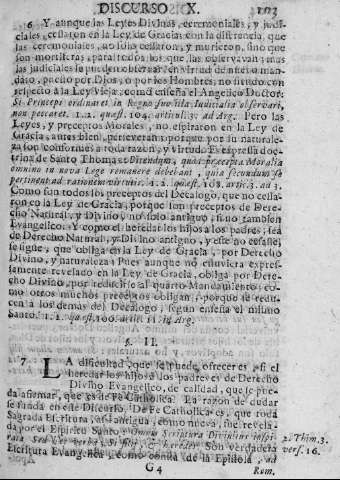 DISCURSO X. 103
6. Y aunque las Leyes Divinas, ceremoniales, y judi-
ciales, cessaron en la Ley de Gracia: con la distincia, que
las ceremoniales, no solo cessaron, y murieron, sino que
son mortiferas, para todos los que las observavan; mas
las judiciales se pueden observar en virtud de nuevo man-
dato, puesto por Dios, ò por los Hombres, no siendo con
respecto à la Ley Vieja, como enseña el Angelico Doctor:
Si Princeps ordinaret in Regno suo illa Iudicialia observari,
non peccaret. 1.2. quæst. 104. articul. 3. ad Arg. Pero las
Leyes, y preceptos Morales, no espiraron en la Ley de
Gracia, antes bien, perseveran; porque por su naturale-
za son conformes à toda razon, y virtud. Es expressa doc-
trina de Santo Thomas: Dicendum, quòd præcepta Moralia
omnino in nova Lege remanere debebant, quia secundum se
pertinent ad rationem virtutis. 1.2. quæst. 108. artic. 3. ad 3.
Como son todos los preceptos del Decalogo, que no cessa-
ron en la Ley de Gracia, porque son preceptos de Dere-
cho Natural, y Divino, no solo antiguo, sino tambien
Evangelico. Y como el heredar los hijos à los padres, sea
de Derecho Natural, y Divino antiguo, y este no cessasse,
se sigue, que obliga en la Ley de Gracia, por Derecho
Divino, y naturaleza: Pues aunque no estuviera expres-
samente revelado en la Ley de Gracia, obliga por Dere-
cho Divino, por reducirse al quarto Mandamiento; co-
mo otros muchos preceptos obligan, porque se redu-
cen à los demàs del Decalogo, segun enseña el mismo
Santo. 1.2. quæst. 100. artic. 11. in Arg.
§. II.
7. LA dificultad, que se puede ofrecer es, si el
heredar los hijos à los padres es de Derecho
Divino Evangelico, de calidad, que se pue-
da afirmar, que es de Fè Catholica. La razon de dudar
se funda en este Discurso. De Fè Catholica es, que toda
Sagrada Escritura, assi antigua, como nueva, fue revela-
da por el Espiritu Santo: Omnis Scriptura Divinitus inspi-
rata Sed sic verba, Si sic, & heredes Son verdadera
Escritura Evangelica, como consta de la Epistola, ad
2. Thim. 3.
vers. 16.
G4 Rom.